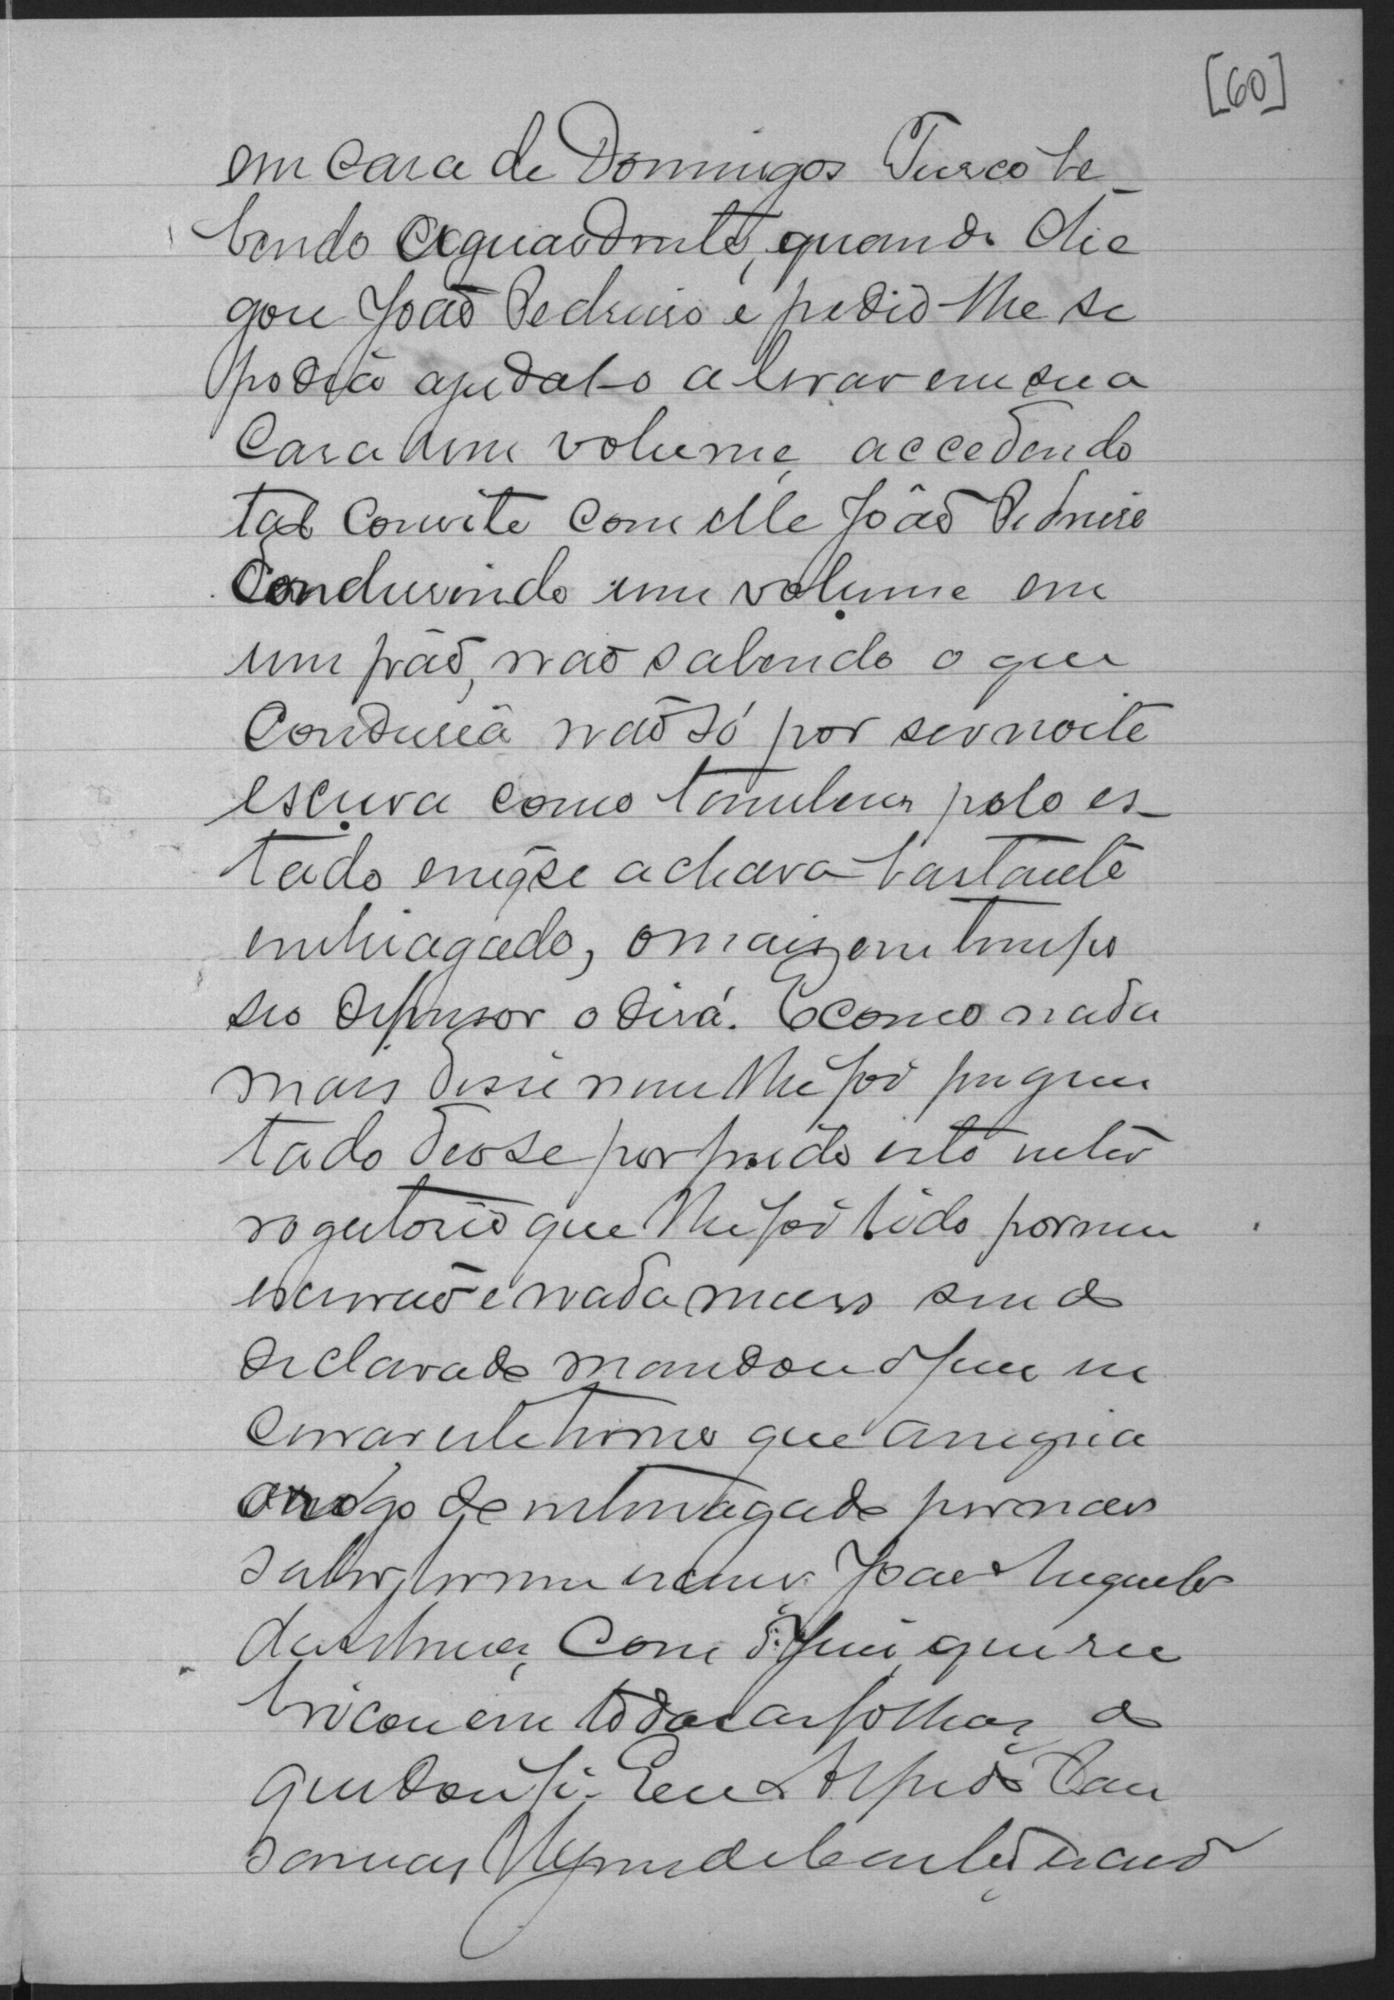 [60]
em casa de Domingos Turco be-
bendo aguardente, quando che
gou João Pedreiro e pedio-lhe se
podia ajudal-o a levar em sua
casa um volume, accedendo
tal convite com elle João Pedreiro
conduzindo um volume em
um páo, não sabendo o que
conduzia não só por ser noite
escura como tambem pelo es-
tado em q se achava bastante
embriagado, o mais em tempo
seo defensor o dirá. E como nada
mais disse nem lhe foi pergun
tado deo-se por findo este inter
rogatorio que lhe foi lido por mim
escrivão e nada mais sendo
declarado mandou o Juiz en
cerrar este termo que assigna
a rogo do interrogado por não
saber, ler nem escrever João
da Silveira, com o Juiz, que ru
bricou em todas as folhas, do
que dou fé. Eu Alfredo
de escrivão